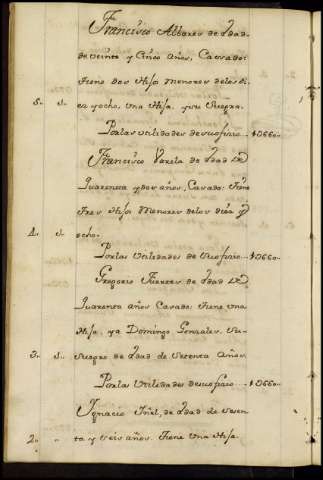 Francisco Albares de Edad
de veinte y Cinco años, Casado:
tiene dos Hijos Menores de los di
ez y ocho, una Hija, y su Suegra.
5.. s..
Por las utilidades de su oficio.. 1066o..
Francisco Varela de Edad de
Quarenta y dos años, Casado: tiene
tres Hijos Menores de los diez y
4.. s.. ocho.
Por las Utilidades de su oficio.. 1066o..
Gregorio de Edad de
Quarenta años Casado: Tiene una
Hija, ya Domingo Gonzales, su
3.. s.. Suegro de Edad de Setenta Años.
Por las Utilidades de su oficio.. 1066o..
Ignacio de Edad de
2.. ta y seis años. Tiene una Hija.